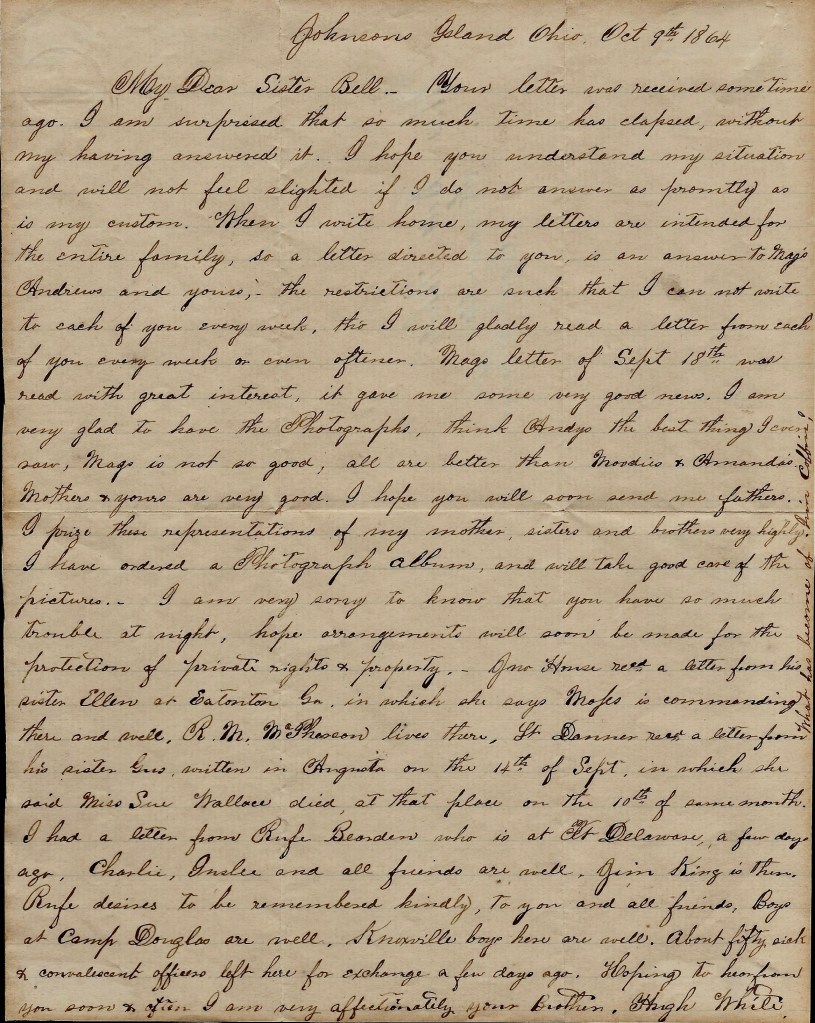 Johnsons Island Ohio. Oct 9th 1864
My Dear Sister Bell.- Your letter was received sometime
ago. I am surprised that so much time has elapsed, without
my having answered it. I hope you understand my situation
and will not feel slighted if I do not answer as promtly as
is my custom. When I write home, my letters are intended for
the entire family, so a letter directed to you, is an answer to Mag's
Andrews and yours,- the restrictions are such that I can not write
to each of you every week, tho I will gladly read a letter from each
of you every week or even oftener. Mags letter of Sept 18th was
read with great interest, it gave me some very good news. I am
very glad to have the Photographs, think Andys the best thing I ever
saw, Mags is not so good, all are better than Moodies & Amandas.
Mothers & yours are very good. I hope you will soon send me fathers.
I prize these representations of my mother, sisters and brothers very highly.
I have ordered a Photograph album, and will take good care of the
pictures.- I am very sorry to know that you have so much
trouble at night, hope arrangements will soon be made for the
protection of private rights & property.- Jno House recd a letter from his
sister Ellen at Eatonton Ga. in which she says Moses is commanding
there and well. R. M. McPherson lives there, Lt Danner recd a letter from
his sister Gus, written in Augusta on the 14th of Sept, in which she
said Miss Sue Wallace died, at that place on the 10th of same month.
I had a letter from Rufe Bearden who is at Ft Delaware, a few days
ago, Charlie, Inslee and all friends are well. Jim King is then.
Rufe desires to be remembered kindly, to you and all friends, Boys
at Camp Douglas are well. Knoxville boys here are well. About fifty sick
& convalescent officers left here for exchange a few days ago. Hoping to hear from
you soon & often I am very affectionately your Brother. Hugh White.
What has become of Jim Coffin?